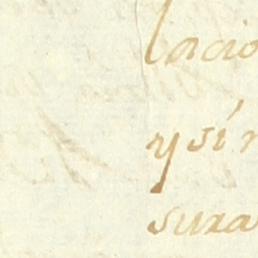 lacio
y si
sura